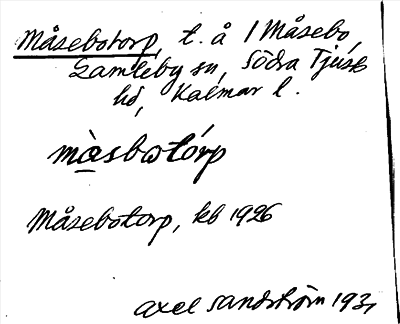 Måsebotorp, t. å 1 Måsebo,
Gamleby sn, Södra Tjusts
hd, Kalmar l.
mà̱sbωtórp
Måsebotorp, kb 1926
Axel Sandström 1931